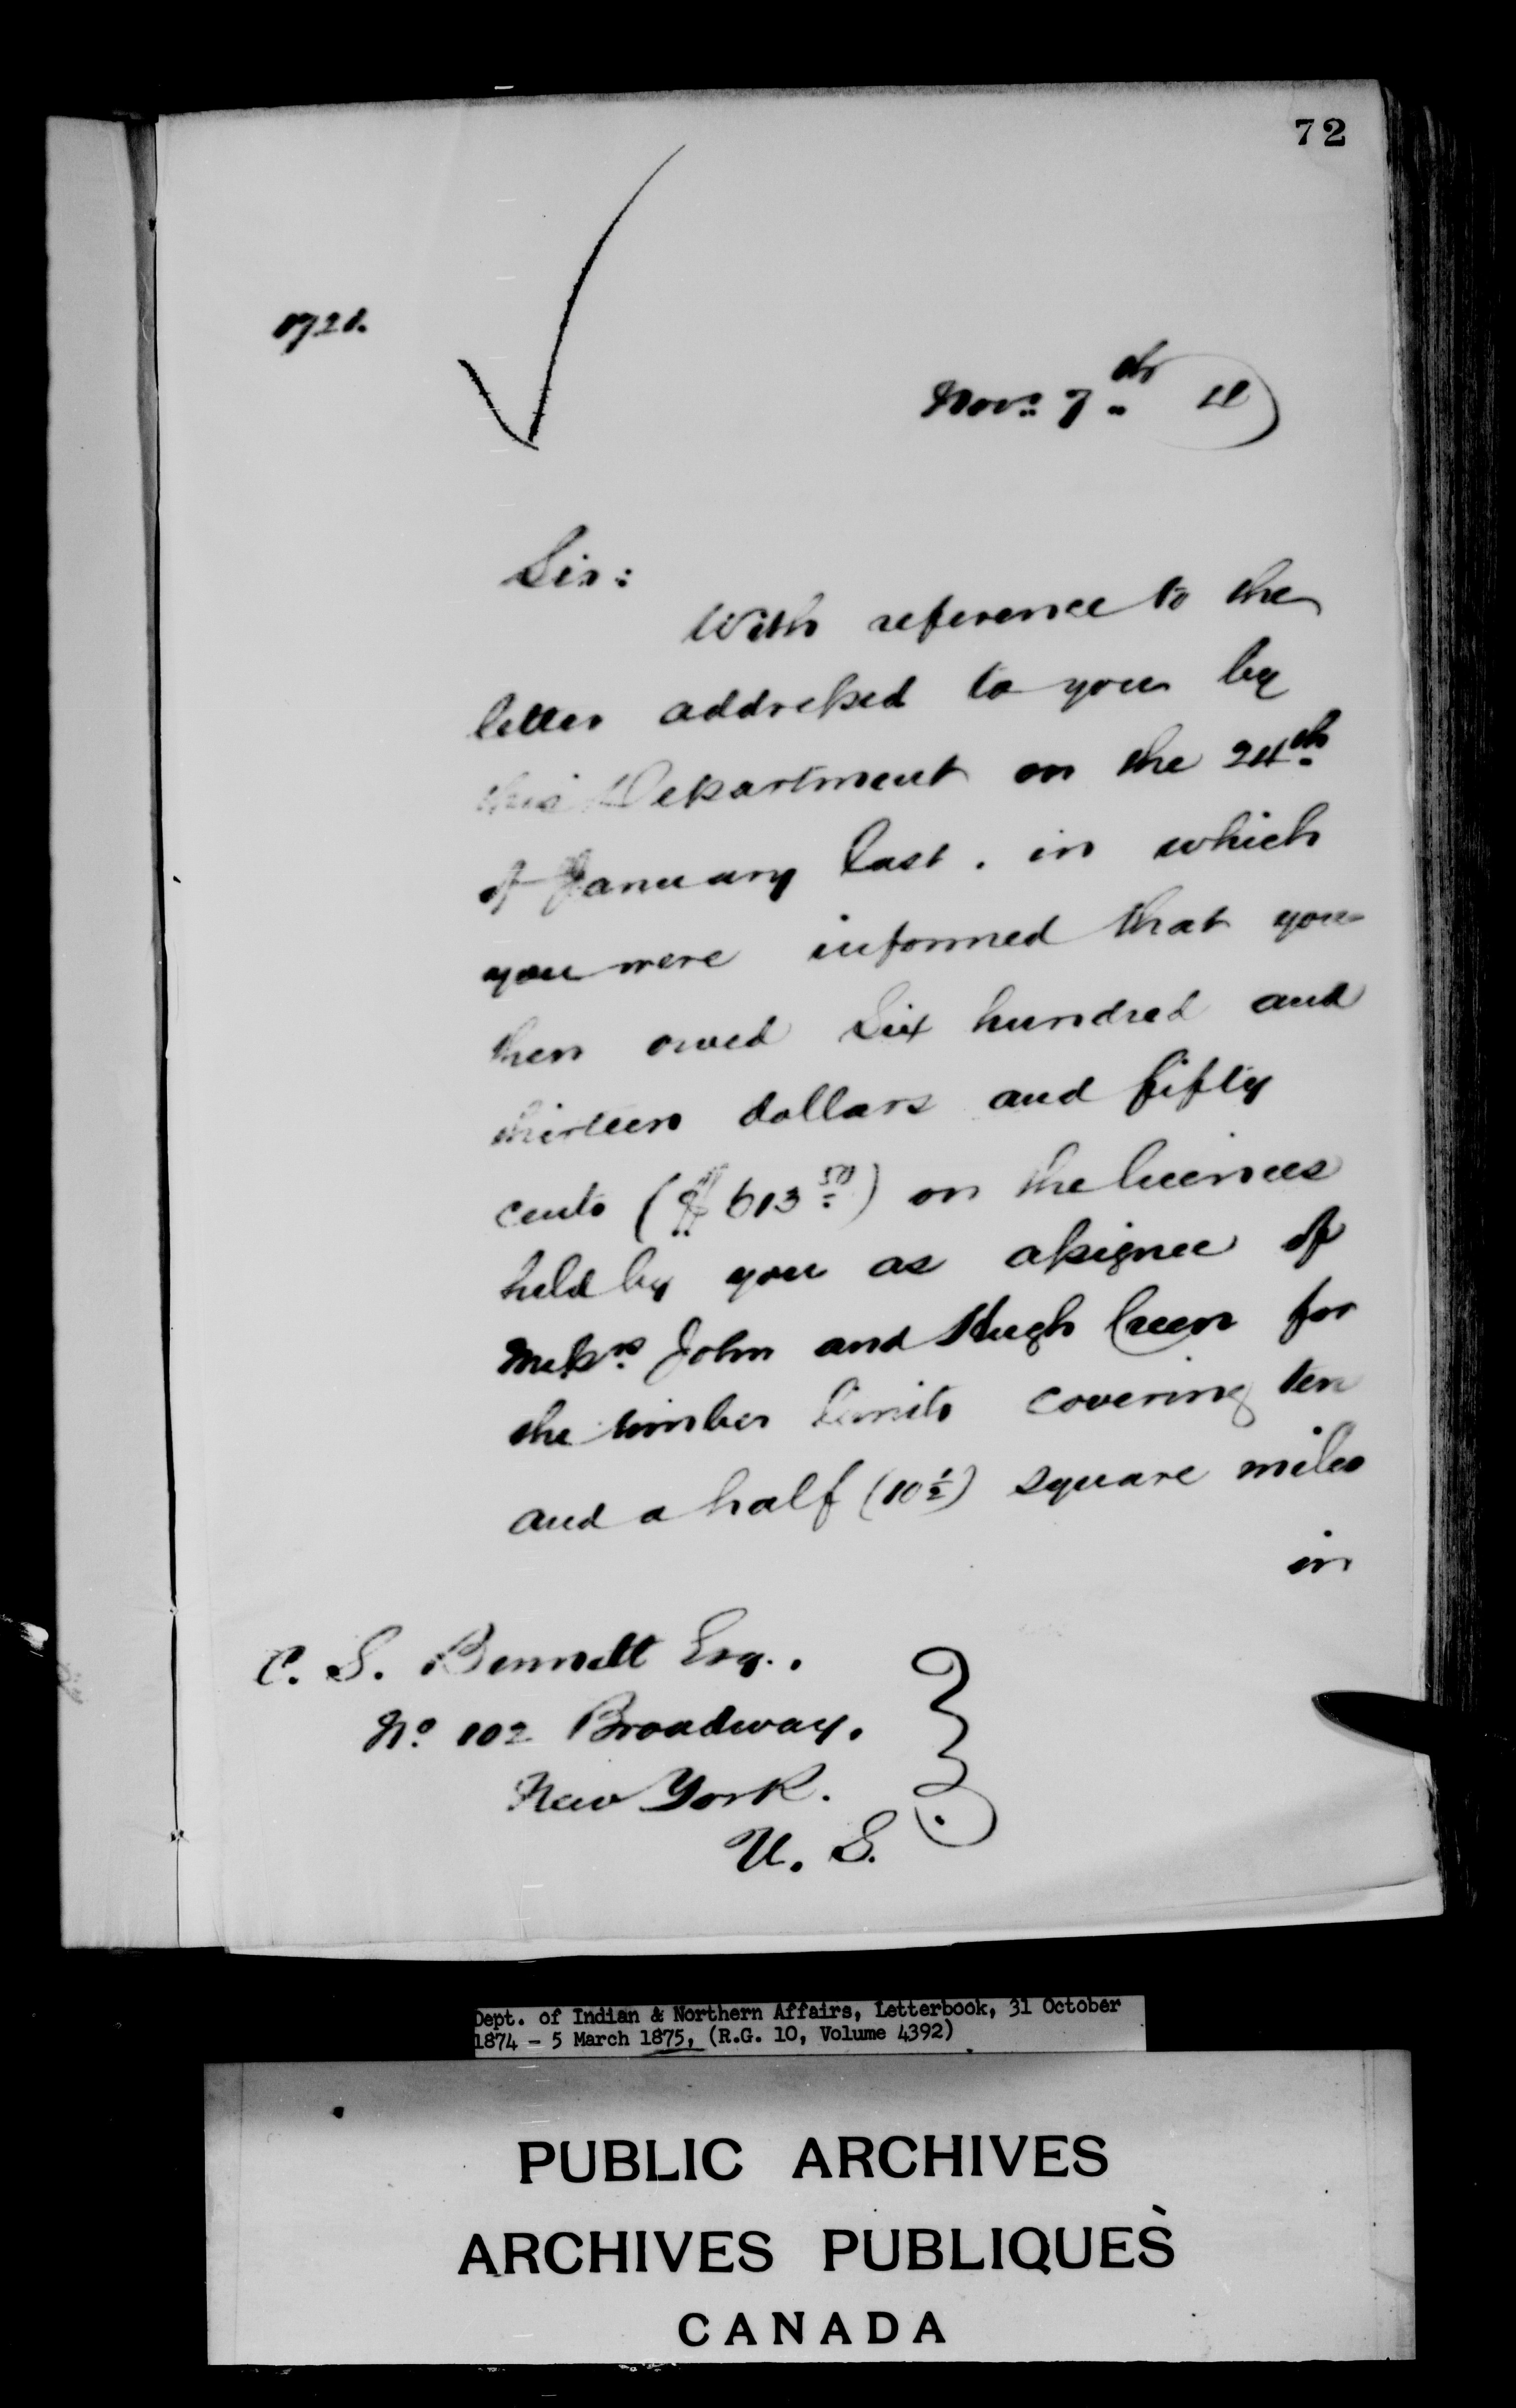 72
Nov: 7th
Sir:
With reference to the
letter addressed to you by
this Department on the 24th
of January last. in which
you were informed that you
then owed Six hundred and
thirteen dollars and fifty
cents ($613.50) on the licenses
held by you as assignee of
Messrs. John and Hugh for
the timber limits covering ten
and a half (10½) square miles
in
C. S. Bennett Esq.
No 102 Broadway.
New York.
U. S.
Dept. of Indian & Northern Affairs, Letterbook, 31 October
1874 - 5 March 1875, (R.G. 10, Volume 4392)
PUBLIC ARCHIVES
ARCHIVES PUBLIQUES
CANADA